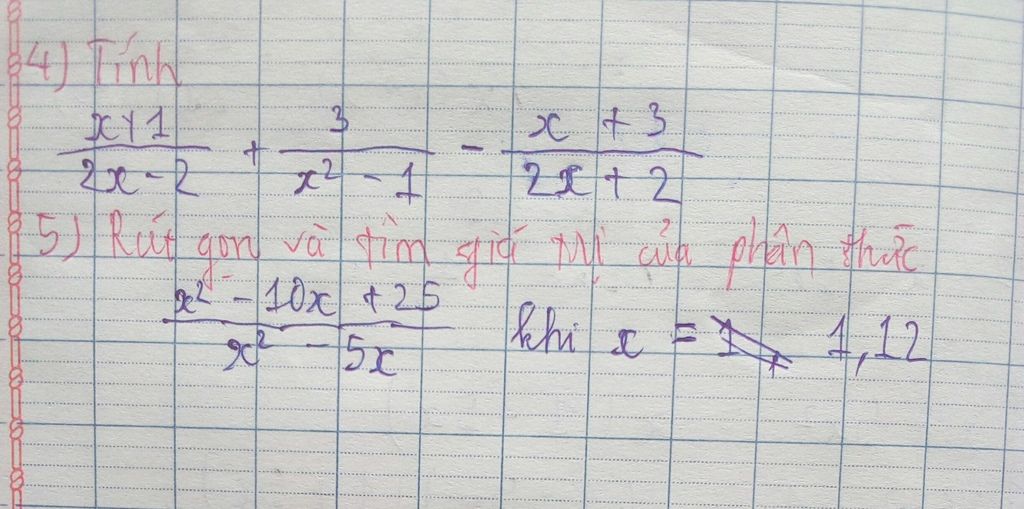 4) Tính
x+1/2x - 2 + 3/x² - 1 - x + 3/2x + 2
5) Rút gọn và tìm giá trị của phân thức
x² - 10x + 25/x² - 5x khi x = 1,12